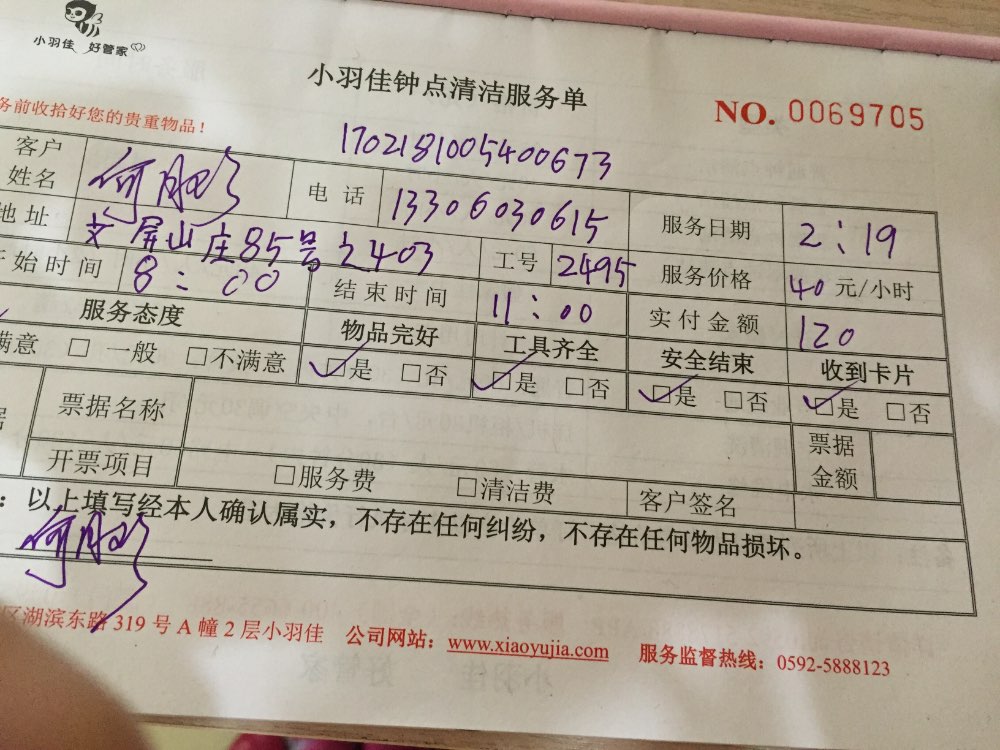 小羽佳 好管家
小羽佳钟点清洁服务单
NO. 0069705
务前收拾好您的贵重物品！
1702181005400673
客户姓名 何鹏 电话 13306030615 服务日期 2:19
地址 文屏山庄85号之403 工号 2495 服务价格 40 元/小时
开始时间 8:00 结束时间 11:00 实付金额 120
服务态度 物品完好 工具齐全 安全结束 收到卡片
满意 □ 一般 □不满意 □是 □否 □是 □否 □是 □否 □是 □否
票据名称 票据金额
开票项目 □服务费 □清洁费 客户签名
：以上填写经本人确认属实，不存在任何纠纷，不存在任何物品损坏。
何鹏
区湖滨东路 319 号 A 幢 2 层小羽佳 公司网站：www.xiaoyujia.com 服务监督热线：0592-5888123